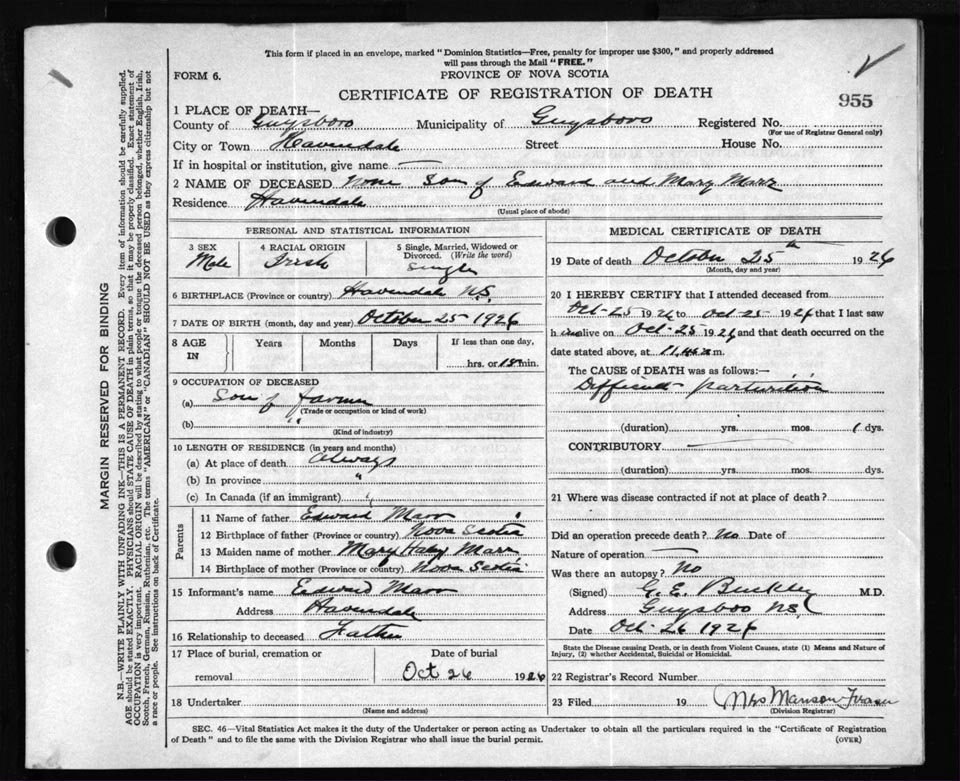 This form if placed in an envelope, marked "Dominion Statistics—Free, penalty for improper use $300," and properly addressed
will pass through the Mail "FREE."
FORM 6.
PROVINCE OF NOVA SCOTIA
CERTIFICATE OF REGISTRATION OF DEATH
955
1 PLACE OF DEATH—
County of Guysboro Municipality of Guysboro Registered No.
(For use of Registrar General only)
City or Town Havendale Street House No.
If in hospital or institution, give name —
2 NAME OF DECEASED None Son of Edward and Mary Marr
Residence Havendale
(Usual place of abode)
PERSONAL AND STATISTICAL INFORMATION
3 SEX 4 RACIAL ORIGIN 5 Single, Married, Widowed or
Divorced. (Write the word)
Male Irish Single
6 BIRTHPLACE (Province or country) Havendale N.S.
7 DATE OF BIRTH (month, day and year) October 25 1926
8 AGE IN Years Months Days If less than one day,
hrs. or min.
9 OCCUPATION OF DECEASED
(a) Son of farmer
(Trade or occupation or kind of work)
(b) "
(Kind of industry)
10 LENGTH OF RESIDENCE (in years and months)
(a) At place of death always
(b) In province "
(c) In Canada (if an immigrant) "
Parents
11 Name of father Edward Marr
12 Birthplace of father (Province or country) Nova Scotia
13 Maiden name of mother Mary Marr
14 Birthplace of mother (Province or country) Nova Scotia
15 Informant's name Edward Marr
Address Havendale
16 Relationship to deceased Father
17 Place of burial, cremation or
removal
Date of burial
Oct 26 1926
18 Undertaker
(Name and address)
MEDICAL CERTIFICATE OF DEATH
19 Date of death October 25th 1926
(Month, day and year)
20 I HEREBY CERTIFY that I attended deceased from
Oct-25 1926 to Oct-25- 1926 that I last saw
h im alive on Oct-25 1926 and that death occurred on the
date stated above, at m.
The CAUSE OF DEATH was as follows:—
Difficult parturition
(duration) yrs. mos. 1 dys.
CONTRIBUTORY
(duration) yrs. mos. dys.
21 Where was disease contracted if not at place of death?
Did an operation precede death? No Date of
Nature of operation —
Was there an autopsy? No
(Signed) G. E. Buckley M.D.
Address Guysboro NS
Date Oct-26 1926
State the Disease causing Death, or in death from Violent Causes, state (1) Means and Nature of
Injury, (2) whether Accidental, Suicidal or Homicidal.
22 Registrar's Record Number
23 Filed 19 Mrs Manson
(Division Registrar)
SEC. 46—Vital Statistics Act makes it the duty of the Undertaker or person acting as Undertaker to obtain all the particulars required in the "Certificate of Registration
of Death" and to file the same with the Division Registrar who shall issue the burial permit.
(OVER)
MARGIN RESERVED FOR BINDING
N.B.—WRITE PLAINLY WITH UNFADING INK—THIS IS A PERMANENT RECORD. Every item of information should be carefully supplied.
AGE should be stated EXACTLY. PHYSICIANS should STATE CAUSE OF DEATH in plain terms, so that it may be properly classified. Exact statement of
OCCUPATION is very important. RACIAL ORIGIN will be described by stating to what people or tongue the deceased person belonged, whether English, Irish,
Scotch, French, German, Russian, Ruthenian, etc. The terms "AMERICAN" or "CANADIAN" SHOULD NOT BE USED as they express citizenship but not
a race or people. See instructions on back of Certificate.